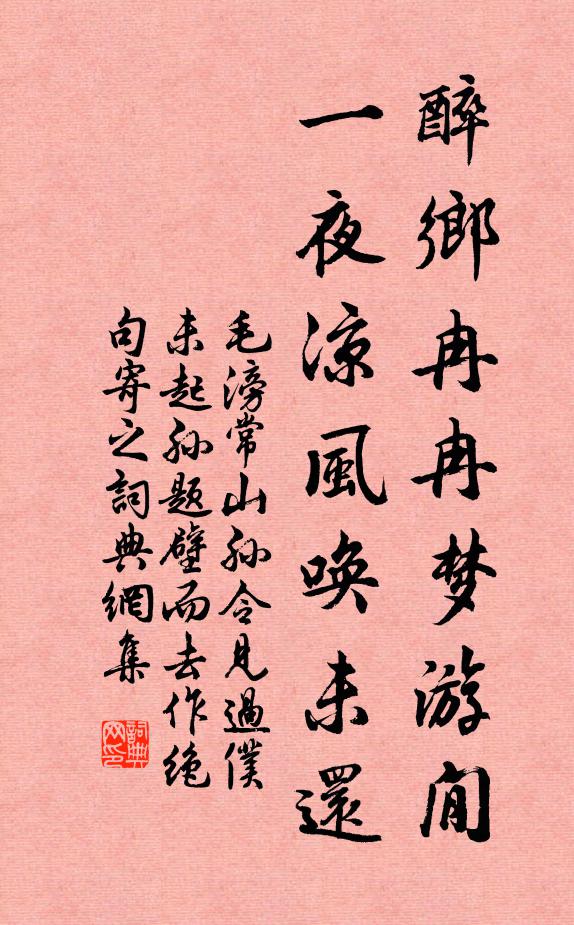 醉鄉冉冉梦游閒
一夜涼風唤未還
毛滂常山孙令見過僕
未起孙題壁而去作绝
句寄之詞典網集
詞典
网印